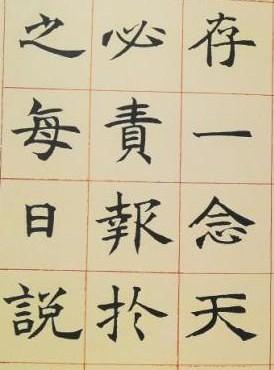 存一念天
必責報於
之每日説